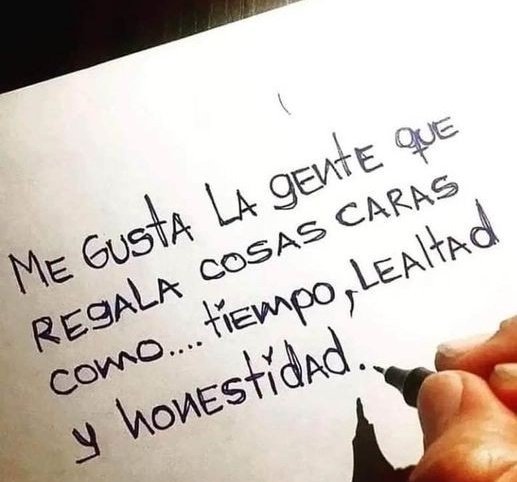 ME GUSTA LA gENTE QUE
REgALA COSAS CARAS
COMO.... tiEMPO, LEALtAd
y HONEStidAd.